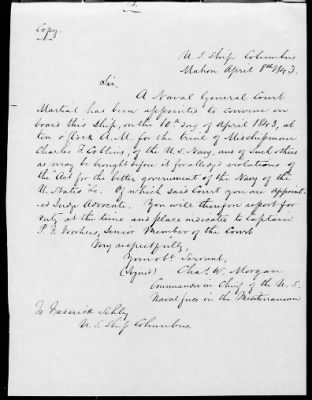 Copy.
U. S. Ship Columbus
Mahon April 8th 1843.
Sir.
A Naval General Court
Martial has been appointed to convene on
board this Ship, on the 10th day of April 1843, at
ten o'clock A.M. for the trial of Midshipman
Charles F. Collins, of the U.S. Navy, and of such others
as may be brought before it for alleged violations of
the "Act for the better government of the Navy of the
U. States" &c. Of which said Court you are appoint-
ed Judge Advocate. You will therefore report for
duty at the time and place indicated to Captain
P. F. Voorhees, Senior Member of the Court
Very respectfully,
Your obt Servant,
(Signed) Chas. W. Morgan
Commander in Chief of the U. S.
Naval force in the Mediterranean
To Frederick
U. S. Ship Columbus.